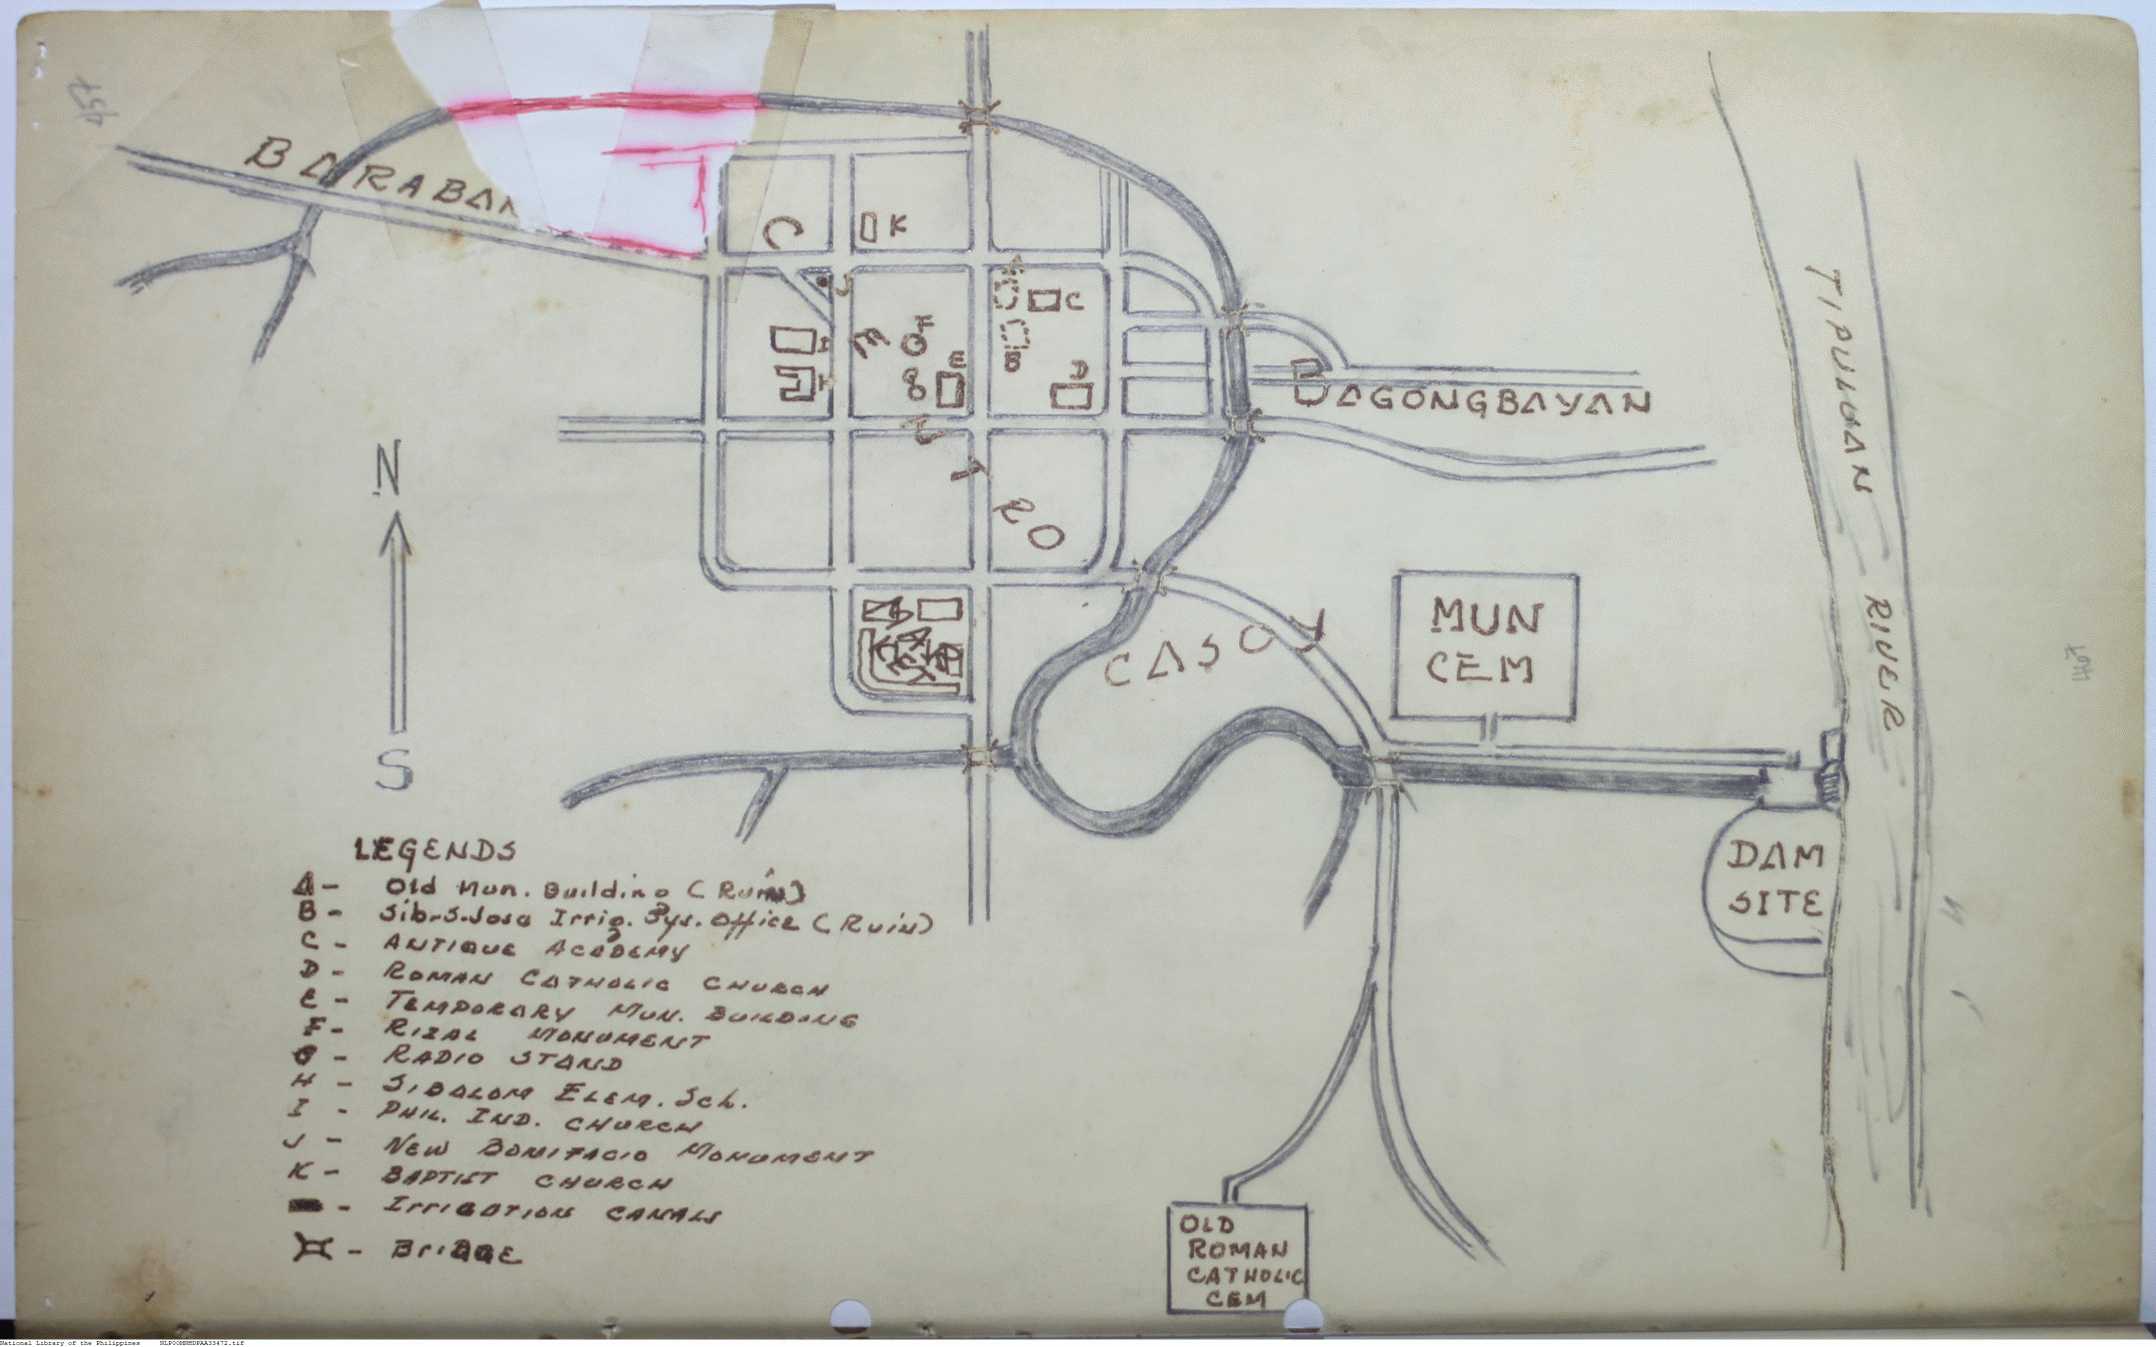 BARABAN
K
C
J
C
F
E
B
D
H
I
G
BAGONGBAYAN
TIPULUAN
RIVER
N
S
CENTRO
CASOY
MUN
CEM
DAM
SITE
LEGENDS
A - Old Mun. Building (Ruin)
B - Sib-S.Jose Irrig. Sys. Office (Ruin)
C - ANTIQUE ACADEMY
D - ROMAN CATHOLIC CHURCH
E - TEMPORARY MUN. BUILDING
F - RIZAL MONUMENT
G - RADIO STAND
H - SIBALOM ELEM. Sch.
I - PHIL. IND. CHURCH
J - NEW BONIFACIO MONUMENT
K - BAPTIST CHURCH
- IRRIGATION CANALS
- BRIDGE
OLD
ROMAN
CATHOLIC
CEM
National Library of the Philippines